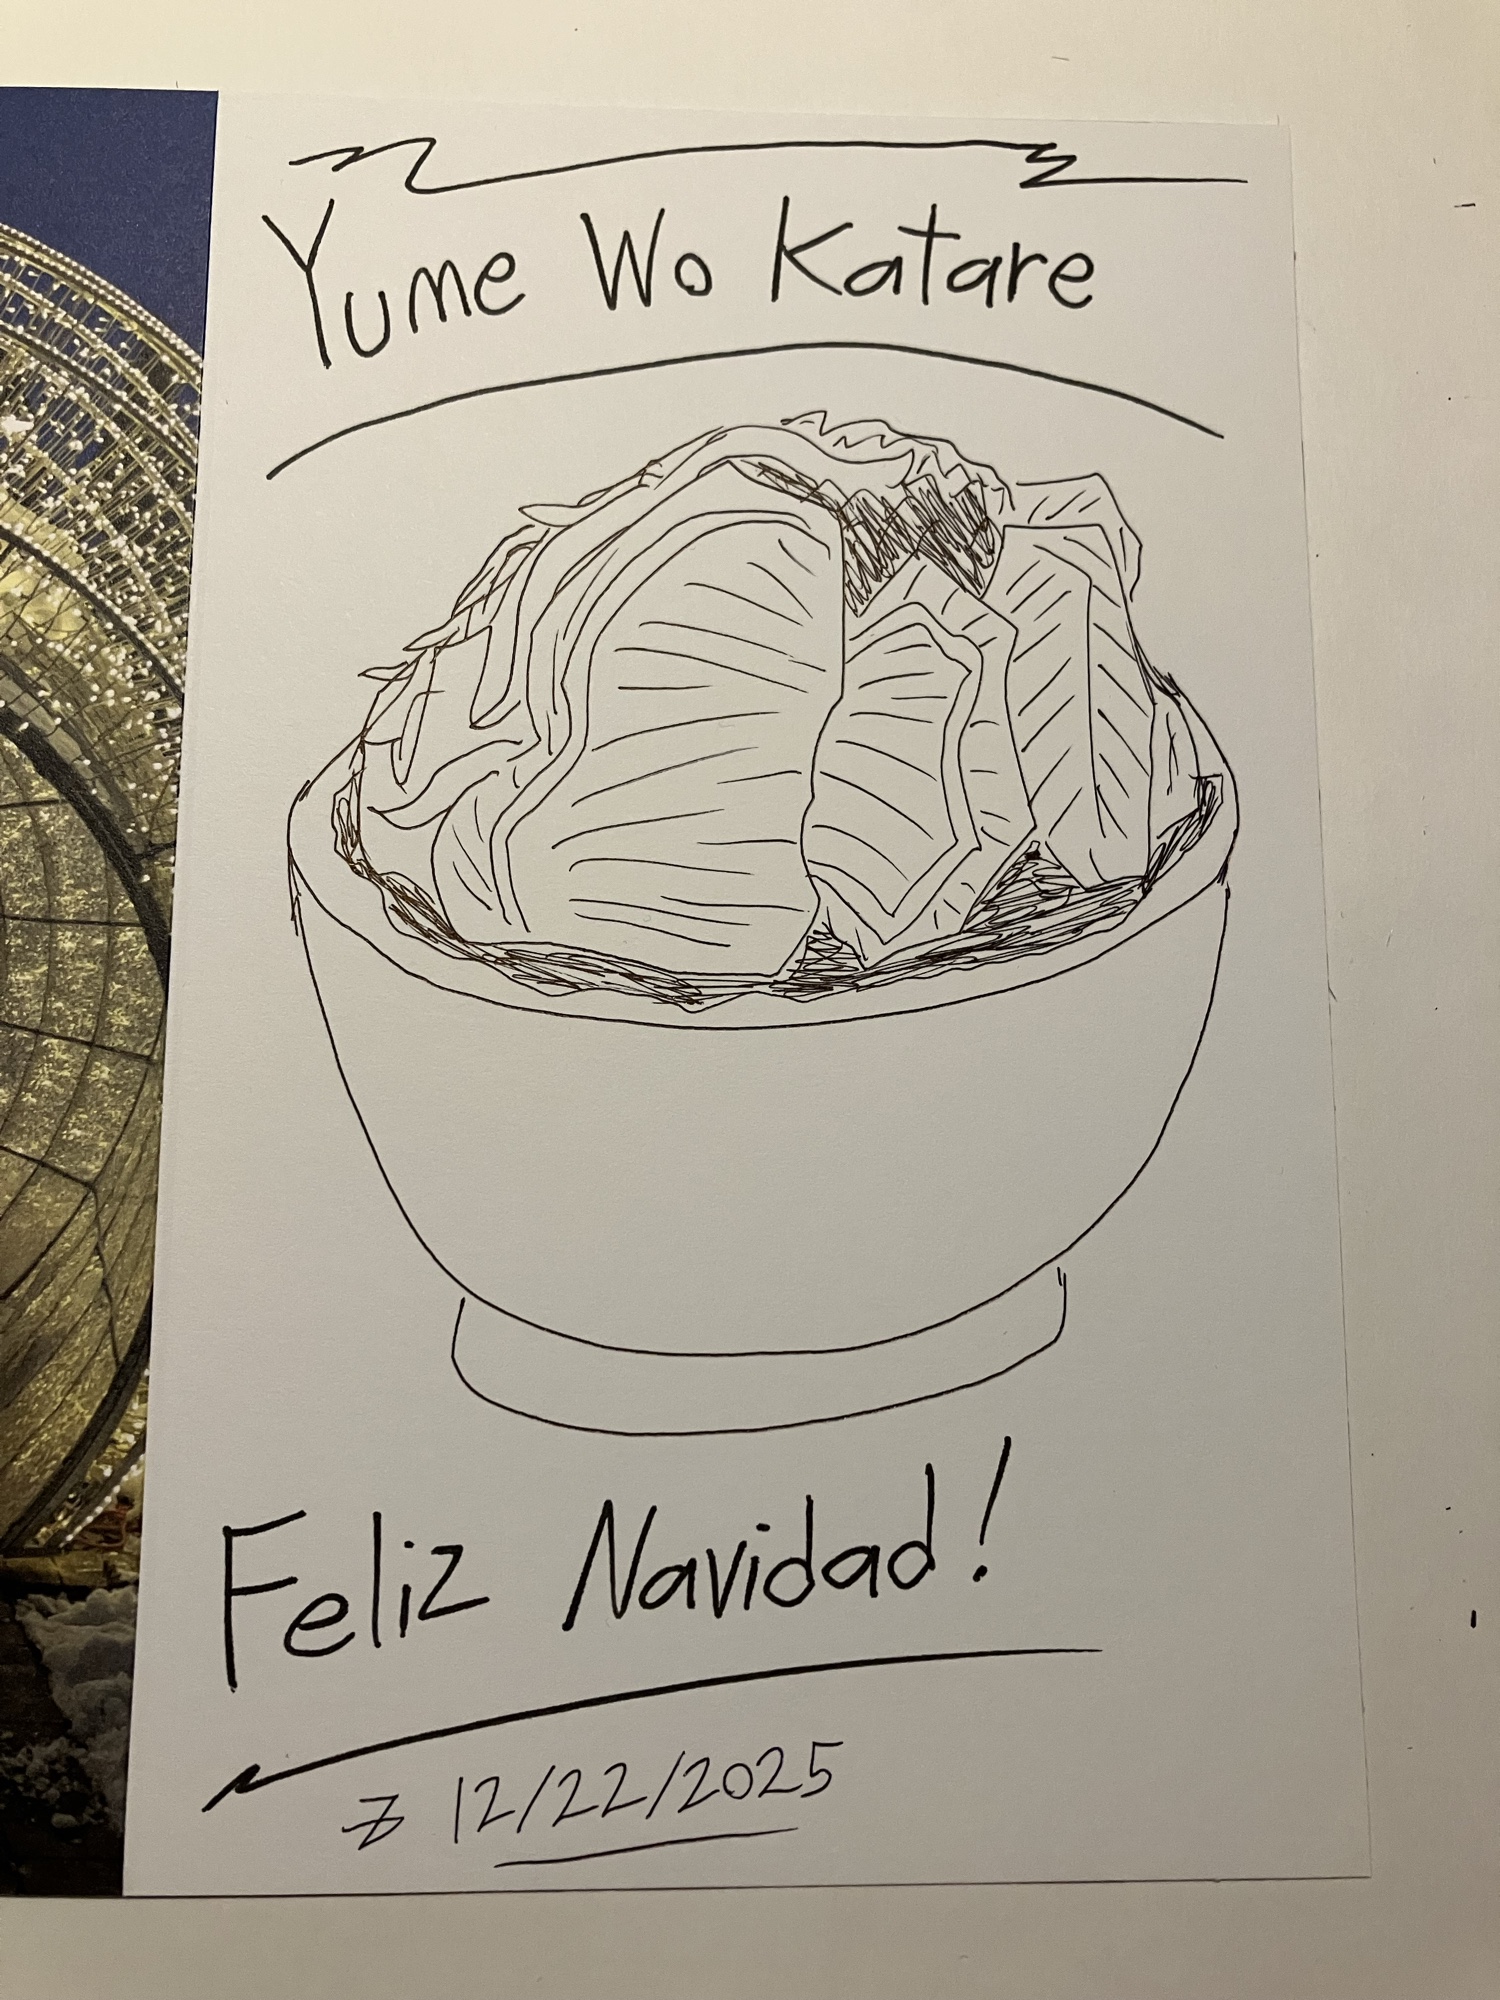 Yume Wo Katare
Feliz Navidad!
Z 12/22/2025